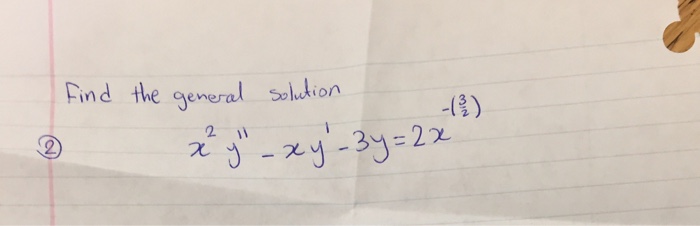 Find the general solution
② x²y" - xy' - 3y = 2x^-(3/2)